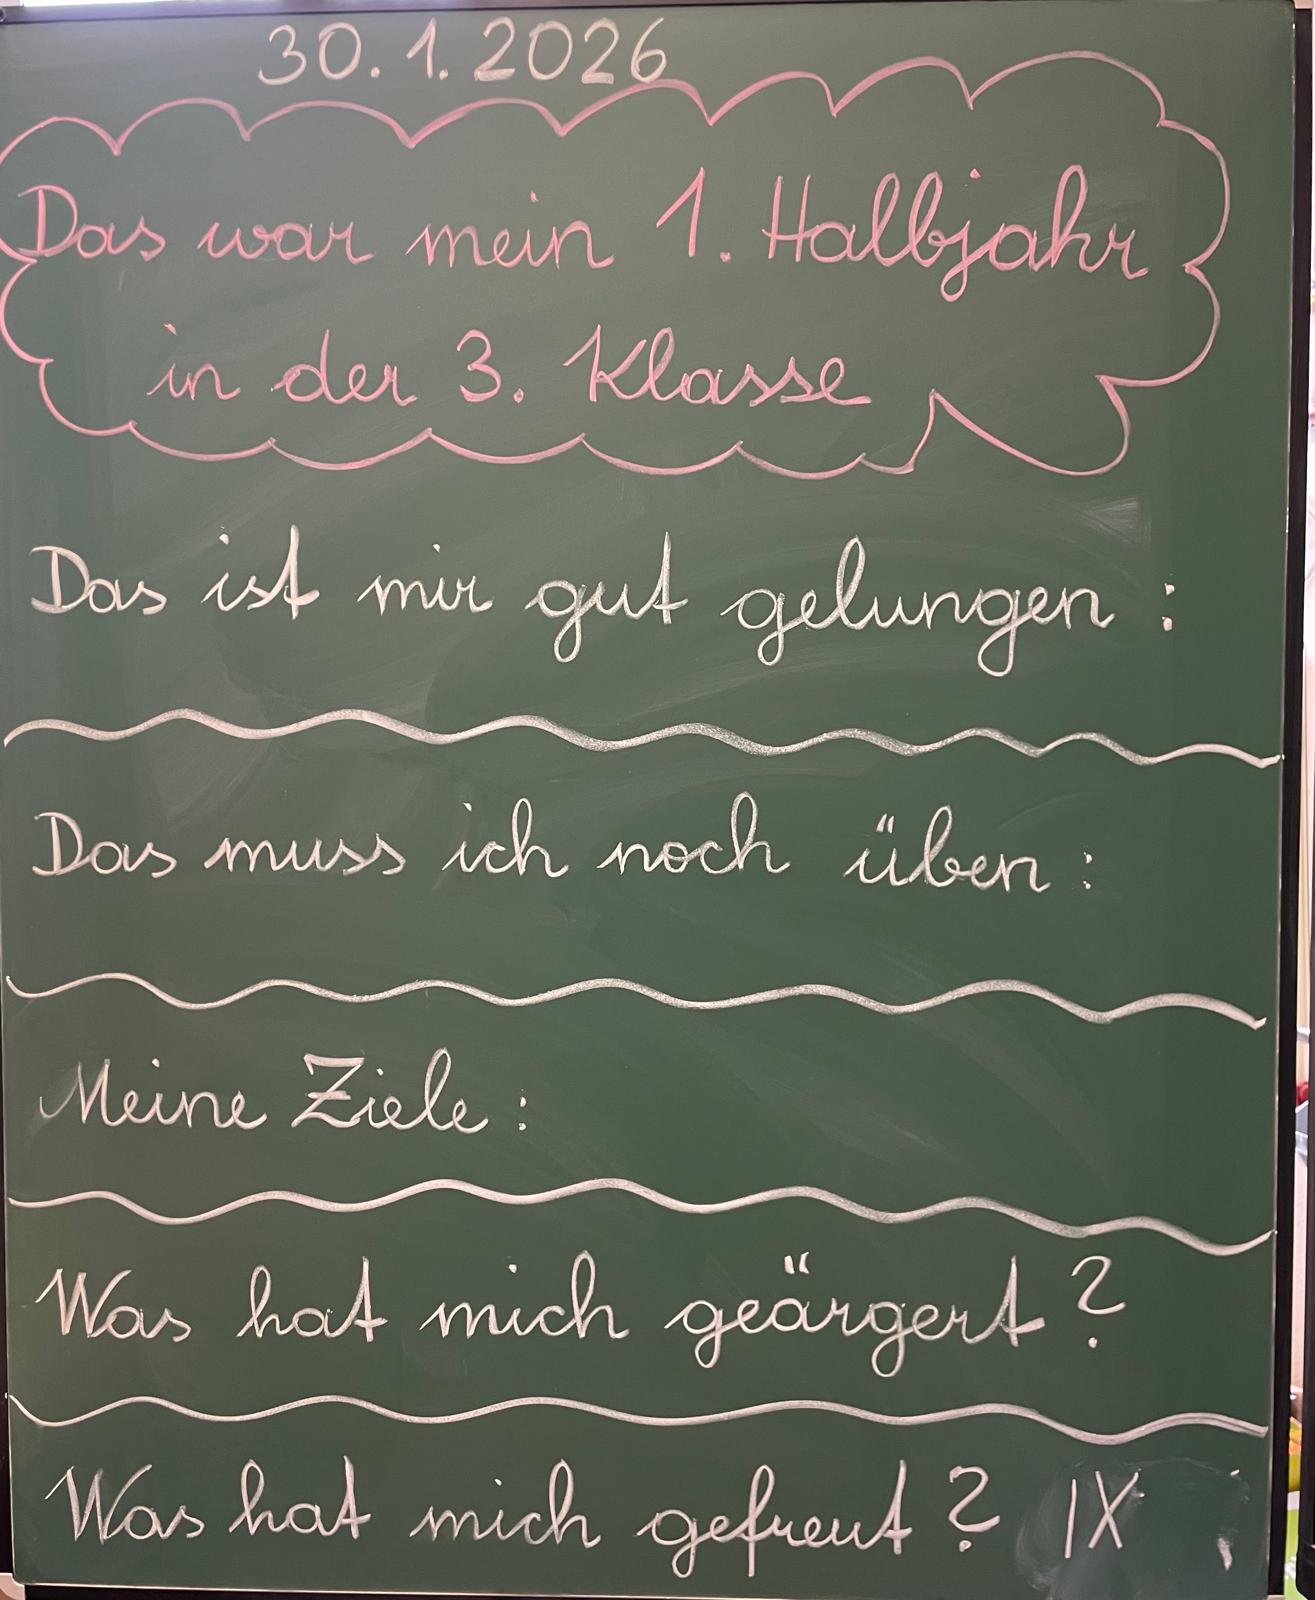 30.1.2026
Das war mein 1. Halbjahr
in der 3. Klasse
Das ist mir gut gelungen:
Das muss ich noch üben:
Meine Ziele:
Was hat mich geärgert?
Was hat mich gefreut? IX